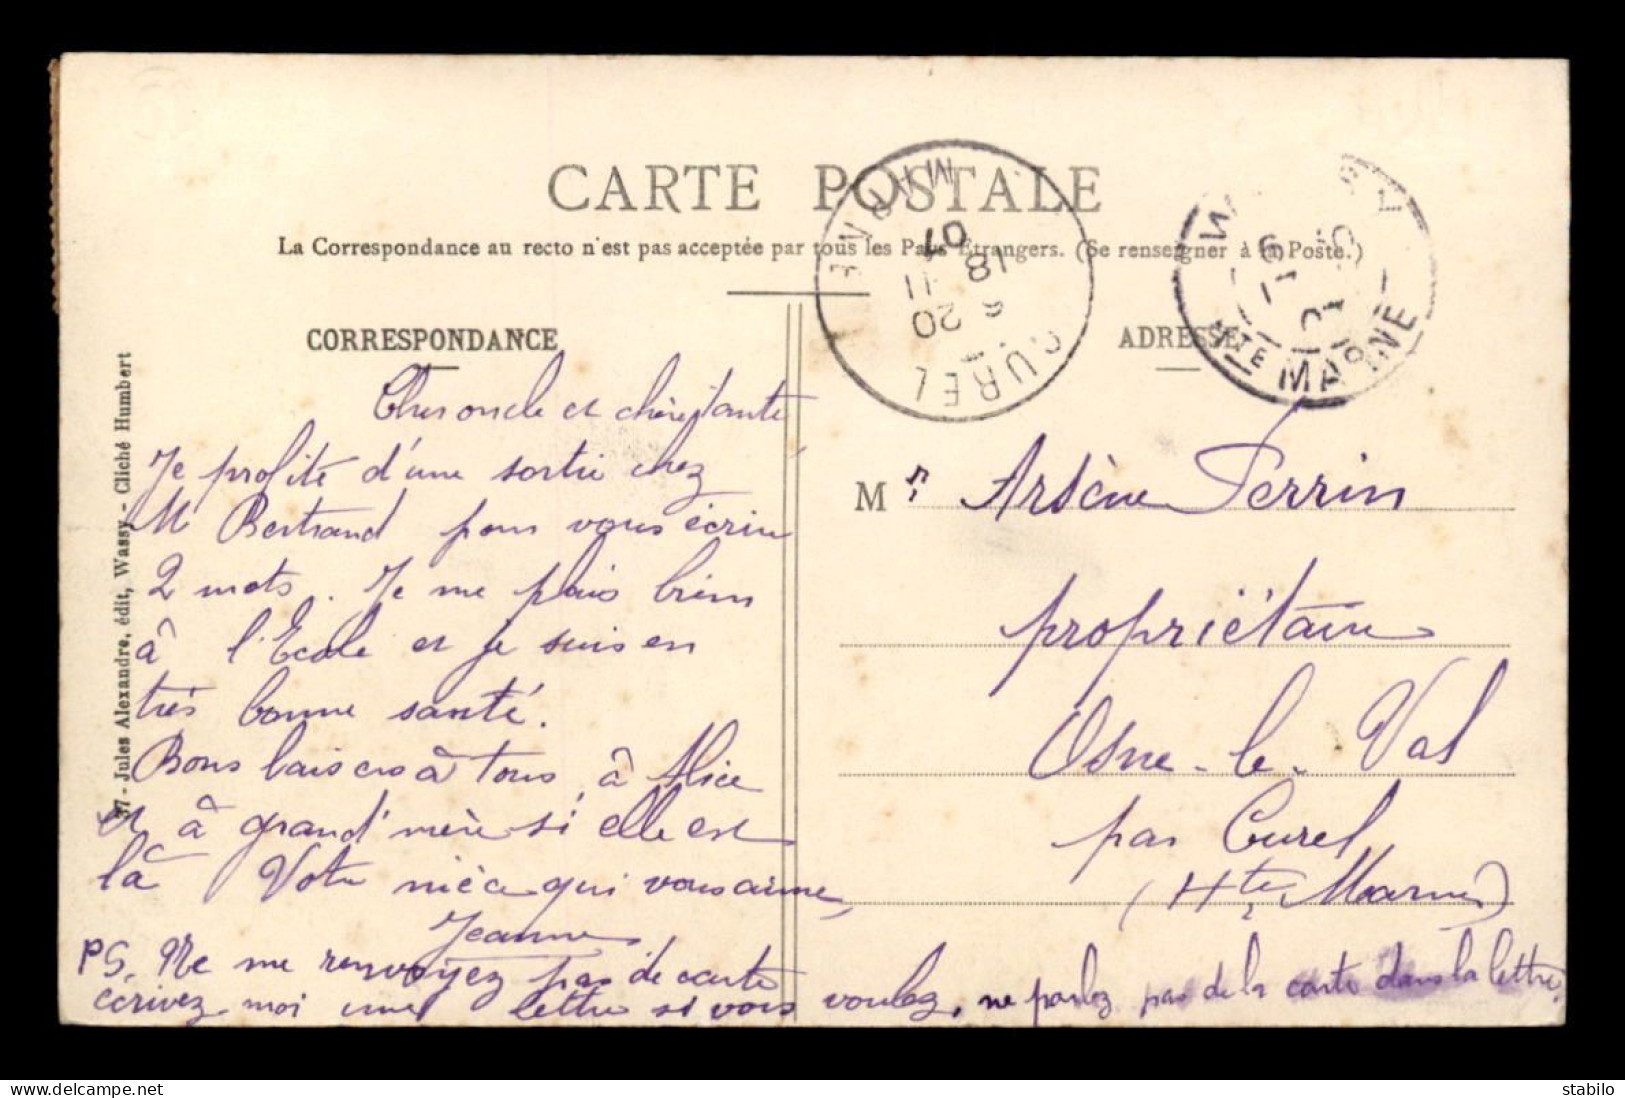 CARTE POSTALE
La Correspondance au recto n'est pas acceptée par tous les Pays Etrangers. (Se renseigner à la Poste.)
CORRESPONDANCE
ADRESSE
37 - Jules Alexandre, édit, Wassy - Cliché Humbert
Cher oncle et chère tante
Je profite d'une sortie chez
M Bertrand pour vous écrire
2 mots. Je me plais bien
à l'Ecole et je suis en
très bonne santé.
Bons baisers à tous, à Alice
et à grand'mère si elle est
là Votre nièce qui vous aime,
Jeanne
PS. Ne me renvoyez pas de carte
écrivez moi une lettre si vous voulez, ne parlez pas de la carte dans la lettre.
Mr Arsène Perrin
propriétaire
Osne-le-Val
par Curel
(Hte Marne)
CUREL
6 20
18 11
07
WASSY
HTE MARNE
delcampe.net
stabilo